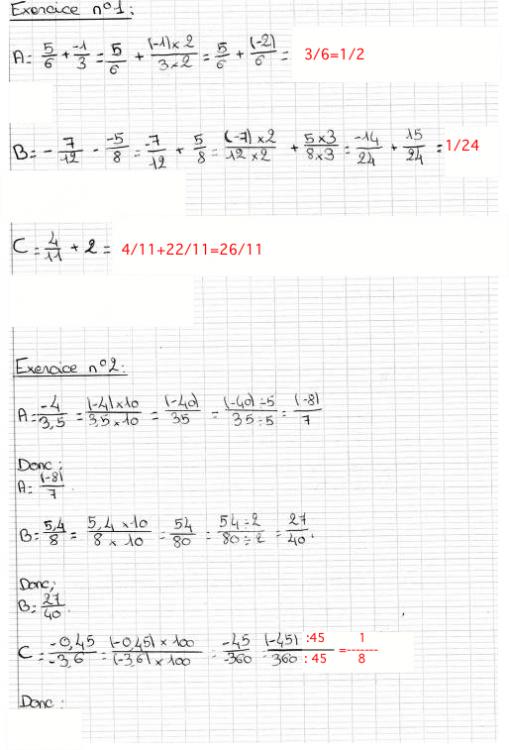 Exercice n°1:
A = 5/6 + -1/3 = 5/6 + (-1)×2/3×2 = 5/6 + (-2)/6 = 3/6=1/2
B = - 7/12 - -5/8 = -7/12 + 5/8 = (-7)×2/12×2 + 5×3/8×3 = -14/24 + 15/24 = 1/24
C = 4/11 + 2 = 4/11+22/11=26/11
Exercice n°2:
A = -4/3,5 = (-4)×10/3,5×10 = (-40)/35 = (-40)÷5/35÷5 = (-8)/7
Donc;
A = (-8)/7.
B = 5,4/8 = 5,4×10/8×10 = 54/80 = 54÷2/80÷2 = 27/40.
Donc;
B = 27/40.
C = -0,45/-3,6 = (-0,45)×100/(-3,6)×100 = -45/-360 = (-45) :45/360 : 45 = 1/8
Donc: